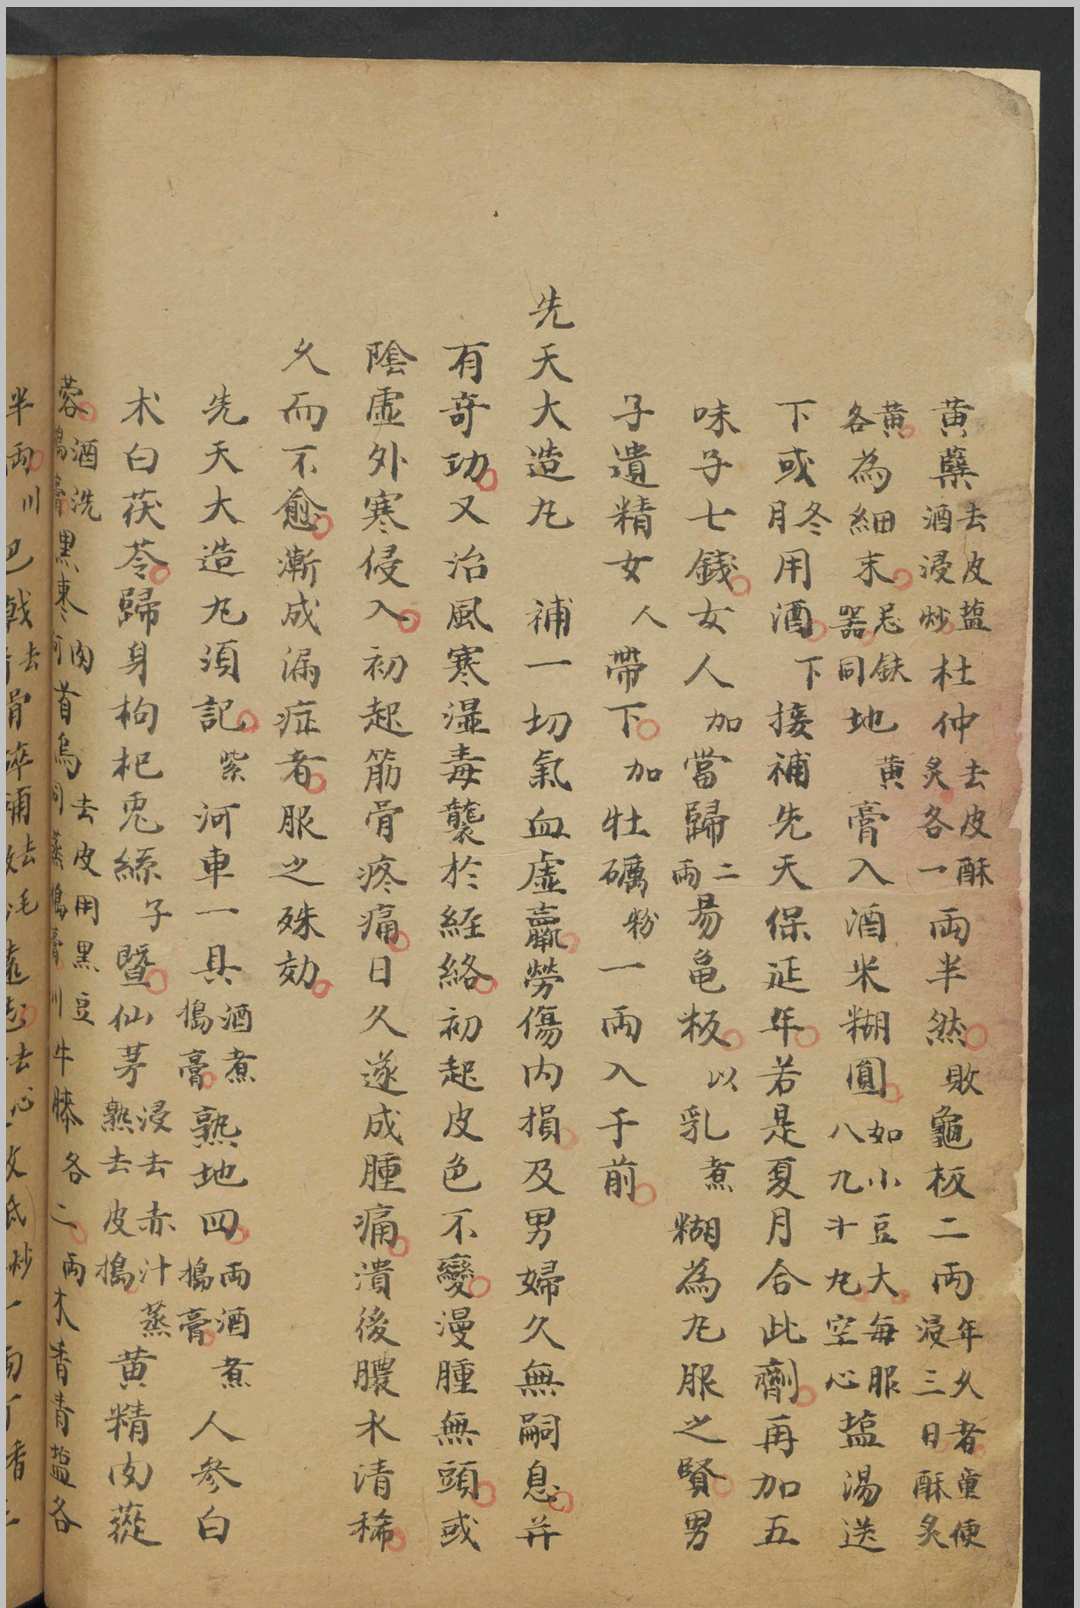 黄蘖去皮盐酒浸炒杜仲去皮酥炙各一兩半然敗龜板二兩年久者童便浸三日酥炙
黄各為細末忌鉄器同地黄膏入酒米糊圓如小豆大每服八九十丸空心塩湯送
下或冬月用酒下接補先天保延年若是夏月合此劑再加五
味子七錢女人加當歸二兩易亀板以乳煮糊為丸服之賢男
子遺精女人帶下加牡礪粉一兩入于前
先天大造丸 補一切氣血虚羸勞傷内損及男婦久無嗣息并
有竒功又治風寒濕毒襲於経絡初起皮色不變漫腫無頭或
陰虚外寒侵入初起筋骨疼痛日久遂成腫痛潰後膿水清稀
久而不愈漸成漏症者服之殊効
先天大造丸須記紫河車一具酒煮搗膏熟地四兩酒煮搗膏人參白
术白茯苓歸身枸杞兎絲子暨仙茅浸去赤汁蒸熟去皮搗黄精肉蓯
蓉酒洗搗膏黒棗肉何首烏去皮用黒豆同蒸搗膏川牛膝各二兩木香青塩各
半兩川巴戟去